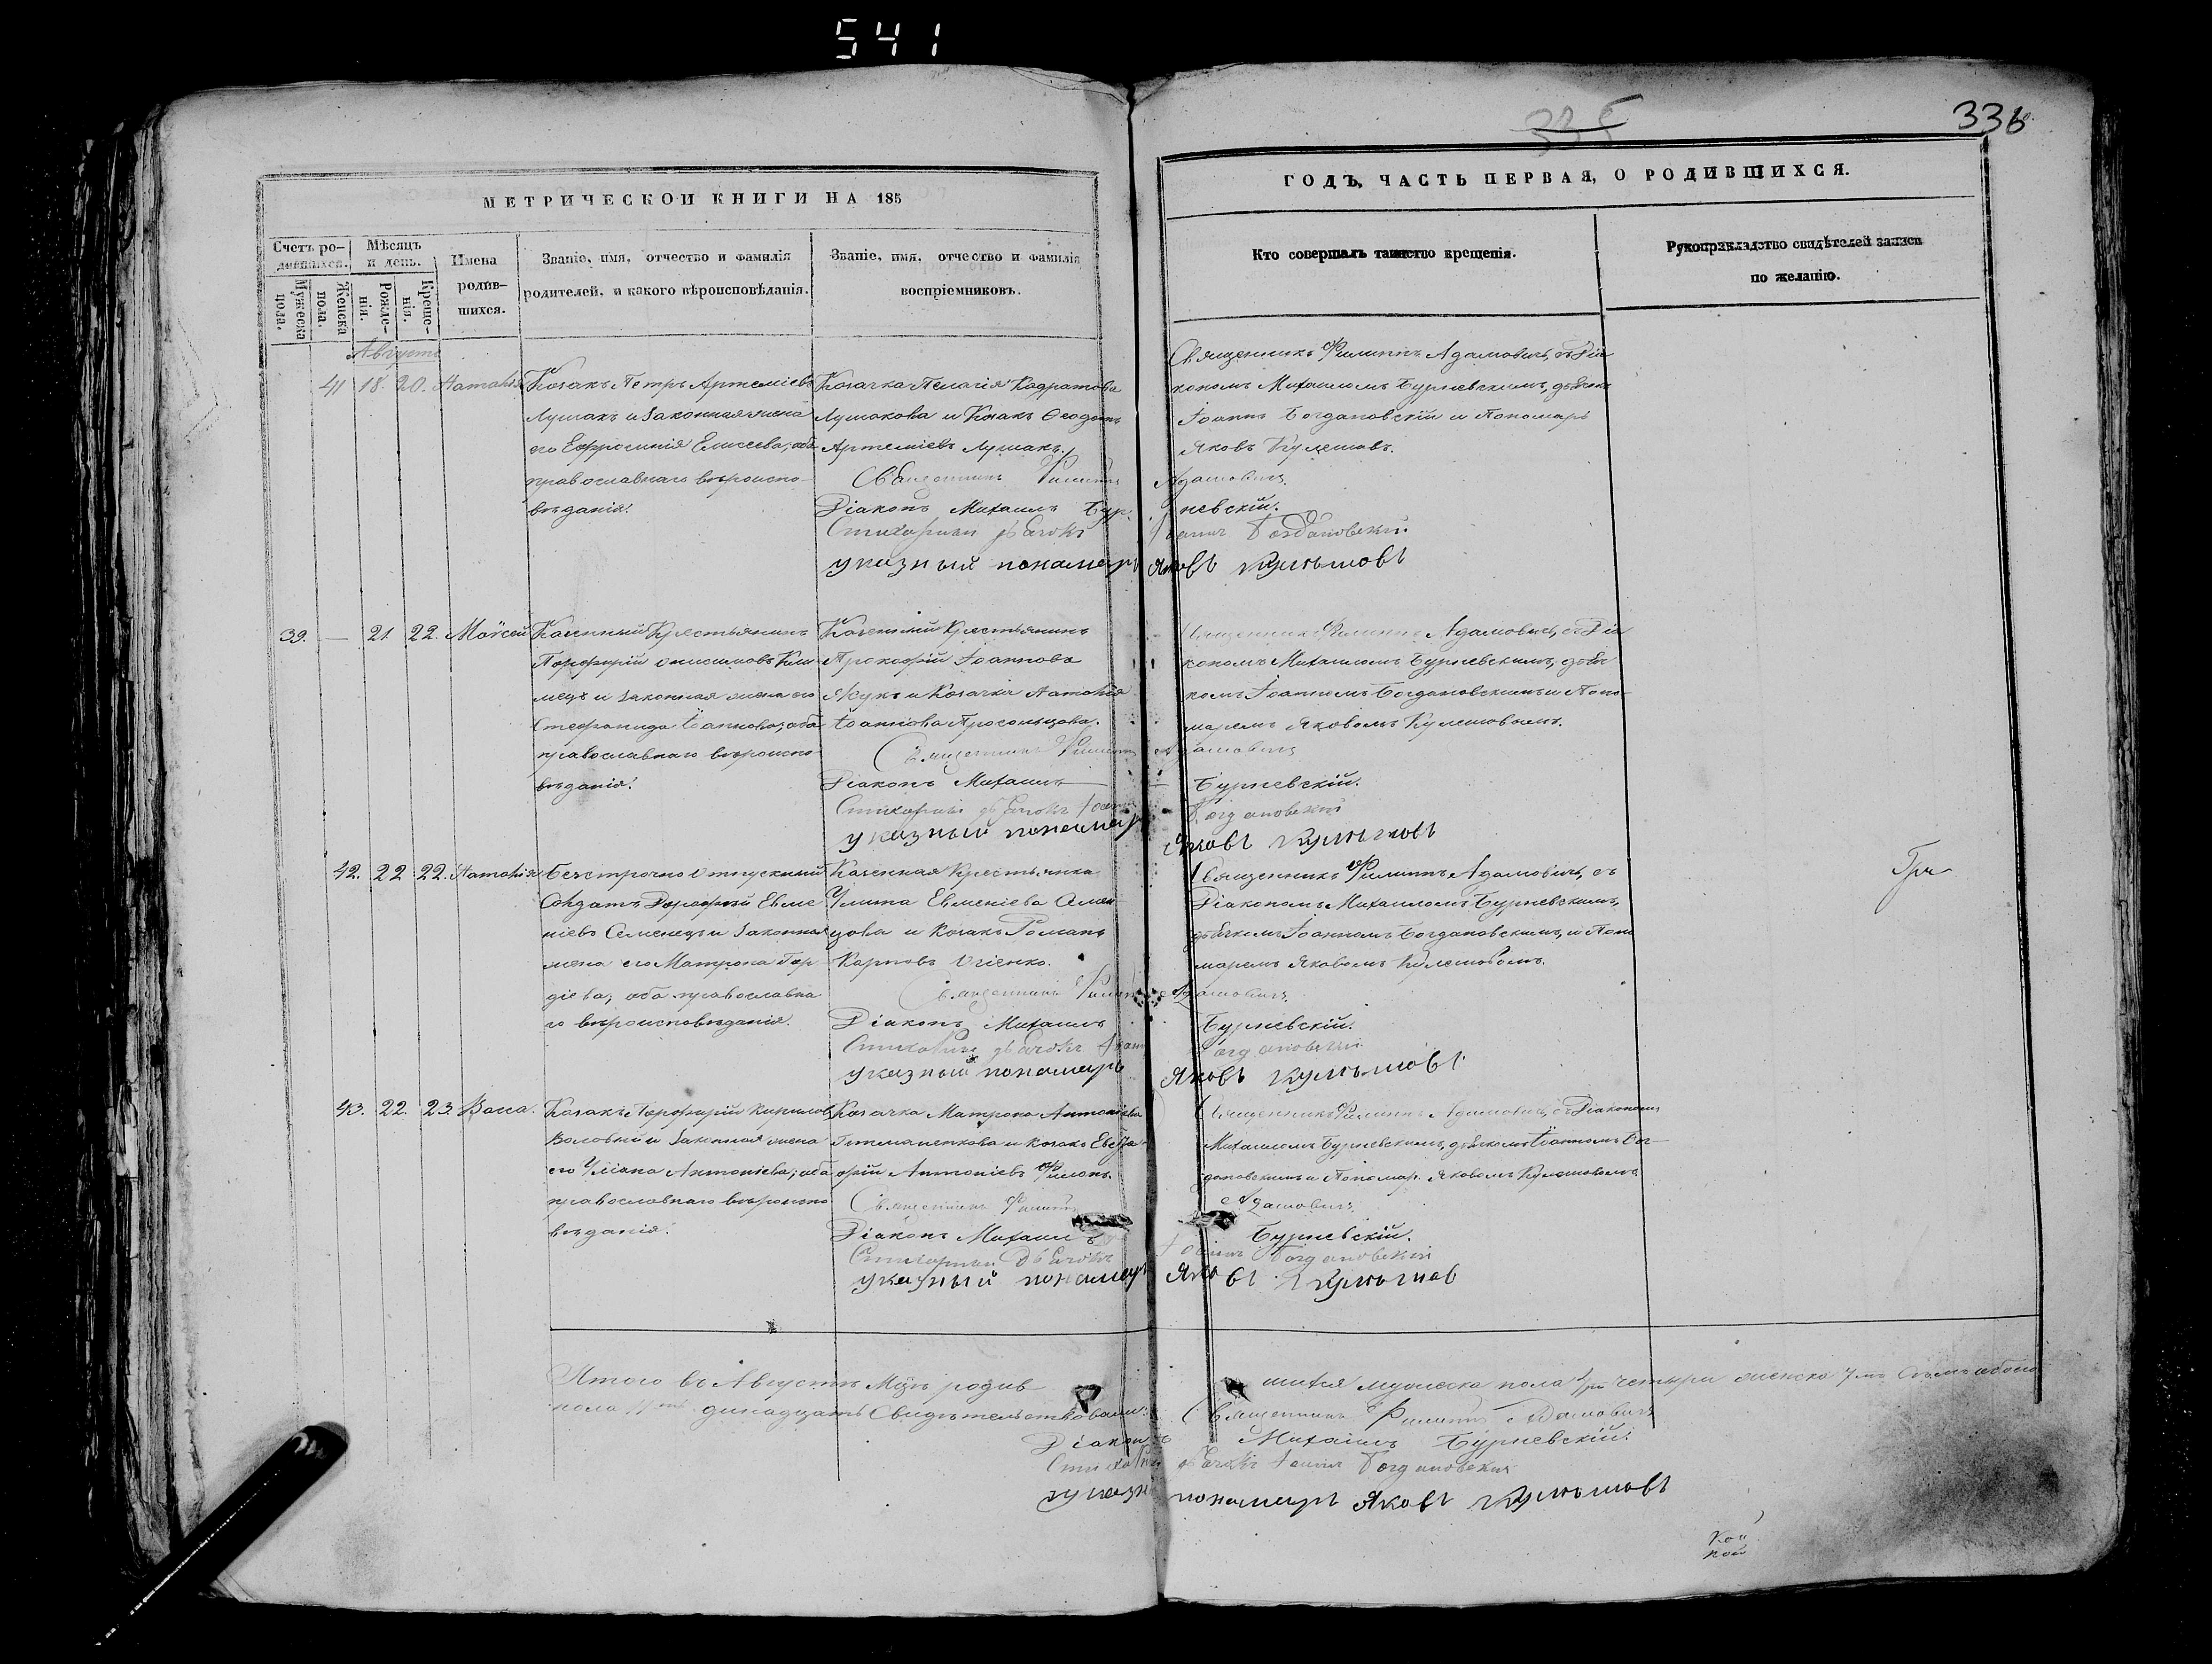 541
335
336
МЕТРИЧЕСКОЙ КНИГИ НА 185
Счетъ ро-
дившихся.
Мужеска пола.
Женска пола.
Мѣсяцъ и день.
Рожде-
нія.
Креще-
нія.
Имена
родив-
шихся.
Званіе, имя, отчество и фамилія
родителей, и какого вѣроисповѣданія.
Званіе, имя, отчество и фамилія
воспріемниковъ.
ГОДЪ, ЧАСТЬ ПЕРВАЯ, О РОДИВШИХСЯ.
Кто совершалъ таинство крещенія.
Рукоприкладство свидѣтелей записи
по желанію.
Августъ
41 18. 20. Наталія
Козакъ Петръ Артеміевъ
Лушакъ и законная жена
его Ефросинія Елисеева, оба
православнаго вѣроиспо-
вѣданія.
Козачка Пелагія Кодратова
Лушакова и Козакъ Ѳеодотъ
Артеміевъ Лушакъ.
Священникъ Филиппъ Адамовичъ, съ Діа
кономъ Михаиломъ Бурневскимъ, дьячкъ
Іоаннъ Богдановскій и Пономарь
Яковъ Кулешовъ.
Священникъ Филиппъ Адамовичъ
Діаконъ Михаилъ Бурневскій.
Стихарный дьячокъ Іоаннъ Богдановскій.
указный понамарь Яковъ Кулешовъ
39. — 21. 22. Моѵсей
Казенный Крестьянинъ
Порфирій Онисимовъ Кли-
мецъ и законная жена его
Стефанида Іоаннова, оба
православнаго вѣроиспо-
вѣданія.
Казенный Крестьянинъ
Прокофій Іоанновъ
Жукъ и Козачка Наталія
Іоаннова
Священникъ Филиппъ Адамовичъ, съ Діа
кономъ Михаиломъ Бурневскимъ, дьяч-
комъ Іоанномъ Богдановскимъ и Поно-
маремъ Яковомъ Кулешовымъ.
Священникъ Филиппъ Адамовичъ
Діаконъ Михаилъ Бурневскій.
Стихарный дьячокъ Іоаннъ Богдановскій
указный понамарь Яковъ Кулешовъ
42. 22 22. Наталія
Безсрочно отпускный
Солдатъ Дорофей Евме
ніевъ Семенецъ и законная
жена его Матрона Гор
діева; оба православна
го вѣроисповѣданія.
Казенная Крестьянка
Улита Евменіева Семен
цова и Козакъ Романъ
Карповъ Огіенко.
Священникъ Филиппъ Адамовичъ, съ
Діакономъ Михаиломъ Бурневскимъ,
дьячкомъ Іоанномъ Богдановскимъ, и Поно
маремъ Яковомъ Кулешовымъ.
Священникъ Филиппъ Адамовичъ.
Діаконъ Михаилъ Бурневскій.
Стихарный дьячокъ Іоаннъ Богдановскій
указный понамарь Яковъ Кулешовъ
43. 22. 23. Васса.
Козакъ Порфирій Кириловъ
и законная жена
его Уліана Антоніева; оба
православнаго вѣроиспо
вѣданія.
Козачка Матрона Антоніева
Гетманенкова и Козакъ Евста-
фій Антоніевъ Филонъ.
Священникъ Филиппъ Адамовичъ, съ Діакономъ
Михаиломъ Бурневскимъ, дьячкомъ Іоанномъ Бог-
дановскимъ и Пономар. Яковомъ Кулешовымъ
Священникъ Филиппъ Адамовичъ.
Діаконъ Михаилъ Бурневскій.
Стихарный Дьячокъ Іоаннъ Богдановскій
указный понамарь Яковъ Кулешовъ
Итого въ Августѣ Мцѣ родив шихся мужеска пола четыри женска 7мъ Семь обоего
пола 11ть динадцать Свидѣтельствовали: Священникъ Филиппъ Адамовичъ
Діаконъ Михаилъ Бурневскій.
Стихарный дьячокъ Іоаннъ Богдановскій
указный понамарь Яковъ Кулешовъ